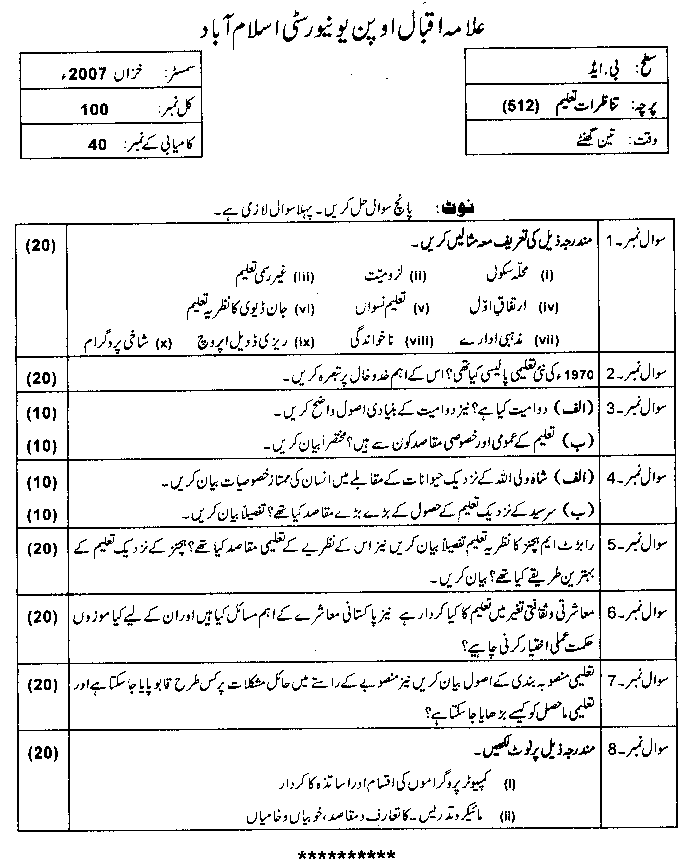 علامہ اقبال اوپن یونیورسٹی اسلام آباد
سطح: بی.ایڈ
پرچہ: تناظرات تعلیم (512)
وقت: تین گھنٹے
سمسٹر: خزاں 2007ء
کل نمبر: 100
کامیابی کے نمبر: 40
نوٹ: پانچ سوال حل کریں۔ پہلا سوال لازمی ہے۔
سوال نمبر۔1 مندرجہ ذیل کی تعریف معہ مثالیں کریں۔ (20)
(i) محلہ سکول (ii) لزومیّت (iii) غیر رسمی تعلیم
(iv) ارتفاق اوّل (v) تعلیم نسواں (vi) جان ڈیوی کا نظریہ تعلیم
(vii) مذہبی ادارے (viii) ناخواندگی (ix) ریزی ڈویل اپروچ (x) شاخی پروگرام
سوال نمبر۔2 1970ء کی نئی تعلیمی پالیسی کیا تھی؟ اس کے اہم خدوخال پر تبصرہ کریں۔ (20)
سوال نمبر۔3 (الف) دوامیت کیا ہے؟ نیز دوامیت کے بنیادی اصول واضح کریں۔ (10)
(ب) تعلیم کے عمومی اور خصوصی مقاصد کون سے ہیں؟ مختصراً بیان کریں۔ (10)
سوال نمبر۔4 (الف) شاہ ولی اللہ کے نزدیک حیوانات کے مقابلے میں انسان کی ممتاز خصوصیات بیان کریں۔ (10)
(ب) سرسید کے نزدیک تعلیم کے حصول کے بڑے بڑے مقاصد کیا تھے؟ تفصیلاً بیان کریں۔ (10)
سوال نمبر۔5 رابرٹ ایم ہچنز کا نظریہ تعلیم تفصیلاً بیان کریں نیز اس کے نظریے کے تعلیمی مقاصد کیا تھے؟ ہچنز کے نزدیک تعلیم کے (20)
بہترین طریقے کیا تھے؟ بیان کریں۔
سوال نمبر۔6 معاشرتی و ثقافتی تغیر میں تعلیم کا کیا کردار ہے نیز پاکستانی معاشرے کے اہم مسائل کیا ہیں اور ان کے لیے کیا موزوں (20)
حکمت عملی اختیار کرنی چاہیے؟
سوال نمبر۔7 تعلیمی منصوبہ بندی کے اصول بیان کریں نیز منصوبے کے راستے میں حائل مشکلات پر کس طرح قابو پایا جا سکتا ہے اور (20)
تعلیمی ماحصل کو کیسے بڑھایا جا سکتا ہے؟
سوال نمبر۔8 مندرجہ ذیل پر نوٹ لکھیں۔ (20)
(i) کمپیوٹر پروگراموں کی اقسام اور اساتذہ کا کردار
(ii) مائیکرو تدریس۔ کا تعارف و مقاصد، خوبیاں و خامیاں
**********